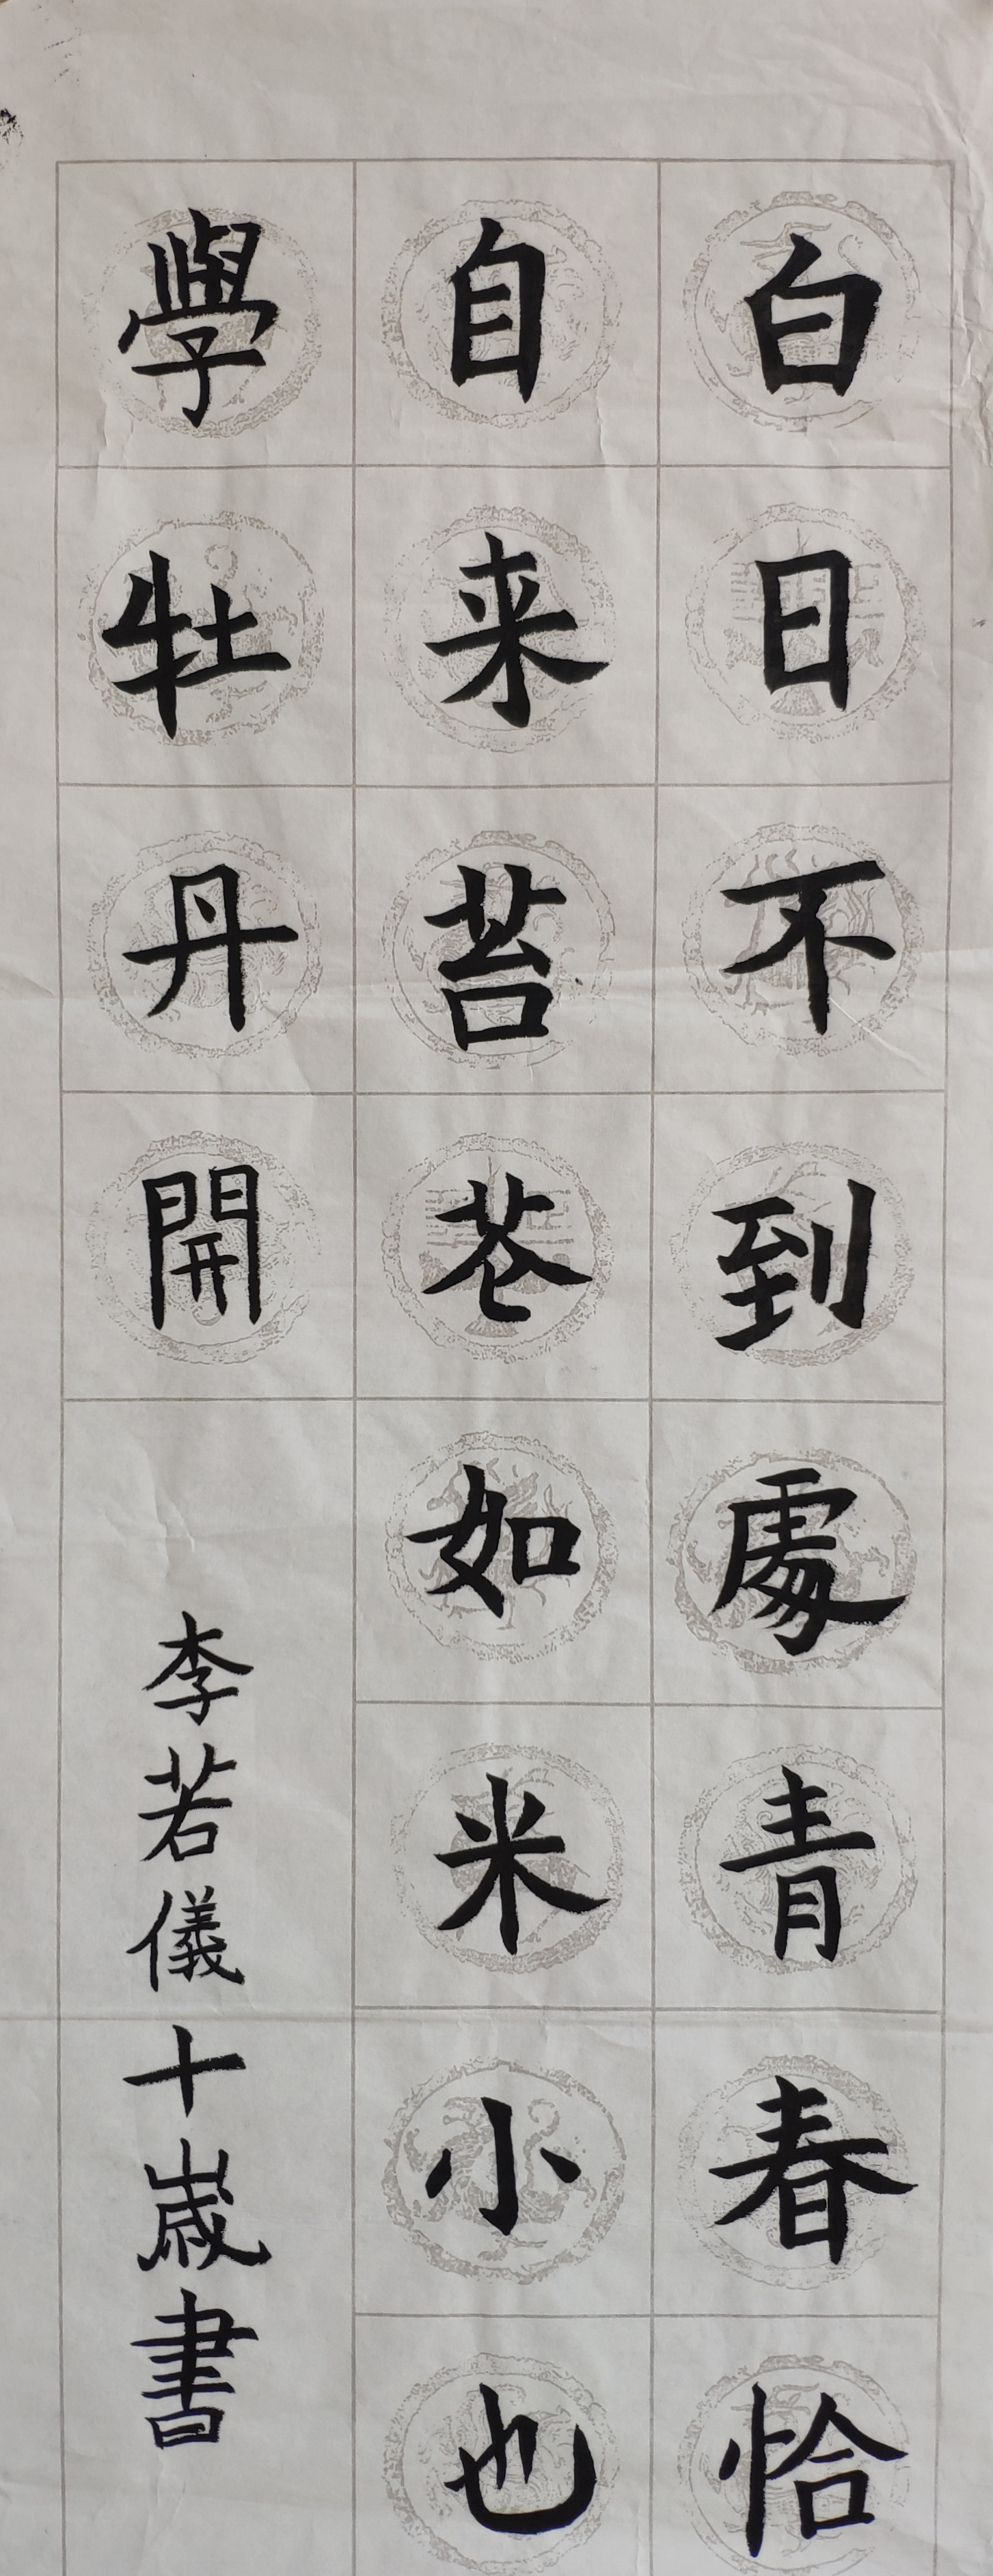 白日不到處青春恰
自来苔花如米小也
學牡丹開
李若儀十歳書